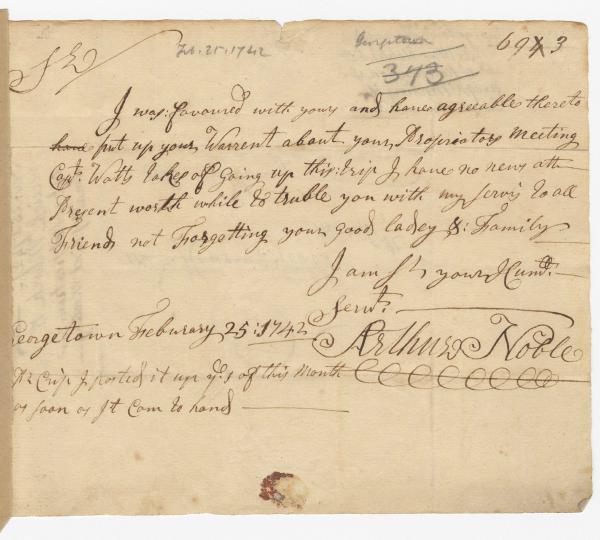 Feb. 25. 1742 Georgetown 6943
343
Sr
I was: favoured with yours and have agreeable thereto
have put up your Warrent about your Propriators Meeting
Capt. Watts talks of going up this: trip I have no news att
Present worth while to truble you with my servis to all
Friends not Forgetting your good ladey &: Family
I am Sr your Hum:
Servt.
Georgetown Feburary 25: 1742
Arthur Noble
I posted it up ye: 5 of this Month
as soon as It Com to hand